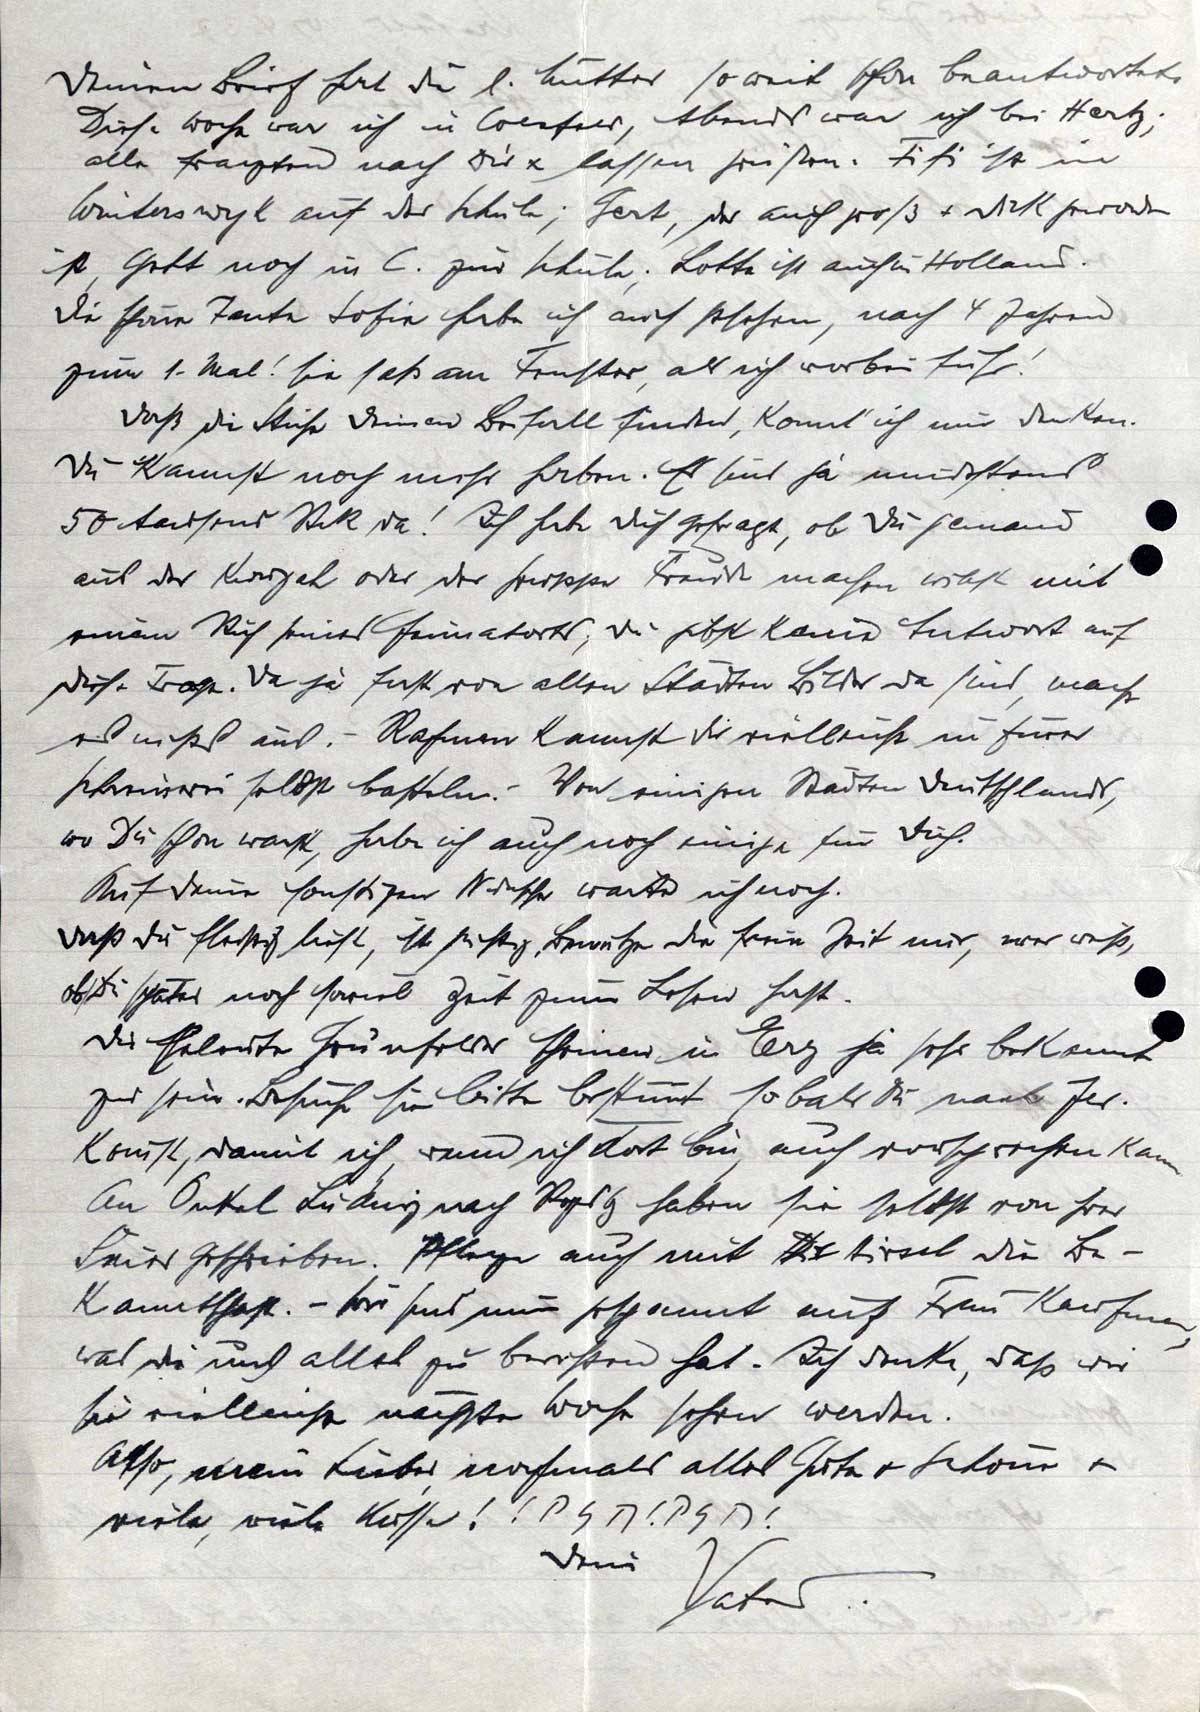 Deinen Brief hat die l. Mutter soweit schon beantwortet.
Diese Woche war ich in Coesfeld, Abends war ich bei Hertz;
alle fragten nach Dir & lassen grüßen. Fifi ist in
Winterswyk auf der Schule; Gert, der auch groß + dick geworden
ist, geht noch in C. zur Schule; Lotte ist auch in Holland.
Die schöne Tante Sofie habe ich auch gesehen, nach 4 Jahren
zum 1. Mal! Sie saß am Fenster, als ich vorbei fuhr!
Daß die Stiche Deinen Beifall finden, konnt' ich mir denken.
Du kannst noch mehr haben. Es sind ja mindestens
50 tausend Stck da! Ich habe Dich gefragt, ob Du jemand
aus der Kwuzah oder der Gruppe Freude machen willst mit
einem Stich seines Heimatorts; Du gibst keine Antwort auf
diese Frage. Da ja fast von allen Städten Bilder da sind, macht
es nichts aus. – Rahmen kannst Du vielleicht in Eurer
Schreinerei selbst basteln. – Von einigen Städten Deutschlands,
wo Du schon warst, habe ich auch noch einige für Dich.
Auf Deine sonstigen Wünsche warte ich noch.
Daß Du fleißig liest, ist richtig, benutze die freie Zeit nur, wer weiß,
ob Du später noch soviel Zeit zum Lesen hast.
Die Eheleute Grünfelder scheinen in Erez ja sehr bekannt
zu sein. Besuche sie bitte bestimmt sobald Du nach Jer.
kommst, damit ich, wenn ich dort bin, auch vorsprechen kann
An Onkel Ludwig nach haben sie selbst von
geschrieben. Pflege auch mit Hirsel die Be-
kanntschaft. – Wir sind nun gespannt auf Frau Kaufman,
was die uns alles zu berichten hat. Ich denke, daß wir
sie vielleicht nächste Woche sehen werden.
Also, mein Lieber, nochmals alles Gute + Schöne +
viele, viele Küsse! !חזק!חזק!
Dein
Vater